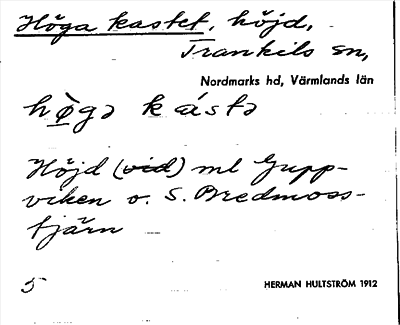 Höga kastet, höjd,
Trankils sn,
Nordmarks hd, Värmlands län
hø̀gə kástə
Höjd (vid) ml Gupp-
viken o. S. Bredmoss-
tjärn
5
HERMAN HULTSTRÖM 1912